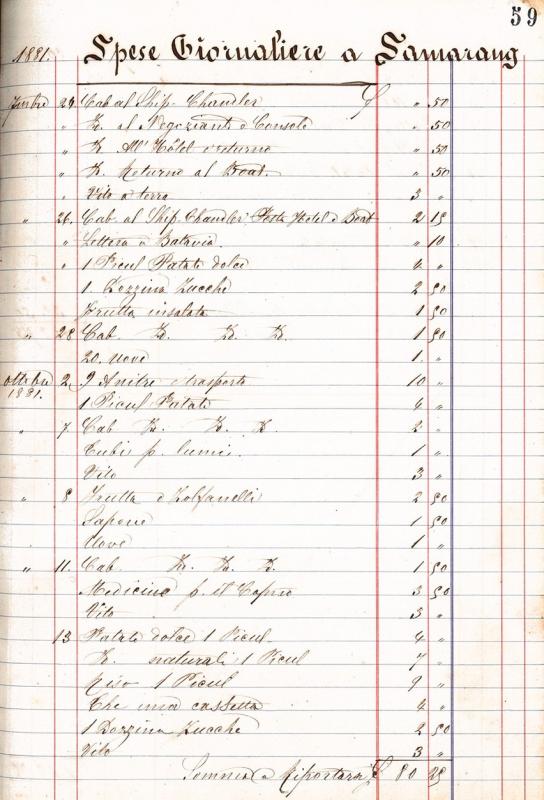 59
1881. Spese Giornaliere a Samarang
7mbre 24 Cab al Ship. Chandler ₤ " 50
" K. al Negozianti e Console " 50
" K. All' Hôtel e ritorno " 50
" K. Ritorno al Boat. " 50
" Vito a terra 3 "
" 26. Cab. al Ship Chandler Hotel e Boat 2 15
" Lettera a Batavia. " 10
" 1 Picul Patate dolce 4 "
1. Dozzina Zucche 2 50
Frutta insalata 1 50
" 28 Cab. K. K. K. 1 50
20. Uove 1. "
Ottobre 1881. 2. 9 Anitre e trasporto 10 "
1 Picul Patate 4 "
" 7. Cab K. K. K. 2 "
Tubi p. lumi. 1 "
Vito 3 "
" 8 Frutta e Zolfanelli 2 50
Sapone 1 50
Uove 1 "
" 11. Cab K. K. K. 1 50
Medicine p. il Capno 3 50
Vito 3 "
13 Patate dolce 1 Picul. 4 "
K. naturali 1 Picul 7 "
Riso 1 Picul 9 "
The una cassetta 4 "
1 Dozzina Zucche 2 50
Vito 3 "
Somma a Riportarsi ₤ 80 25